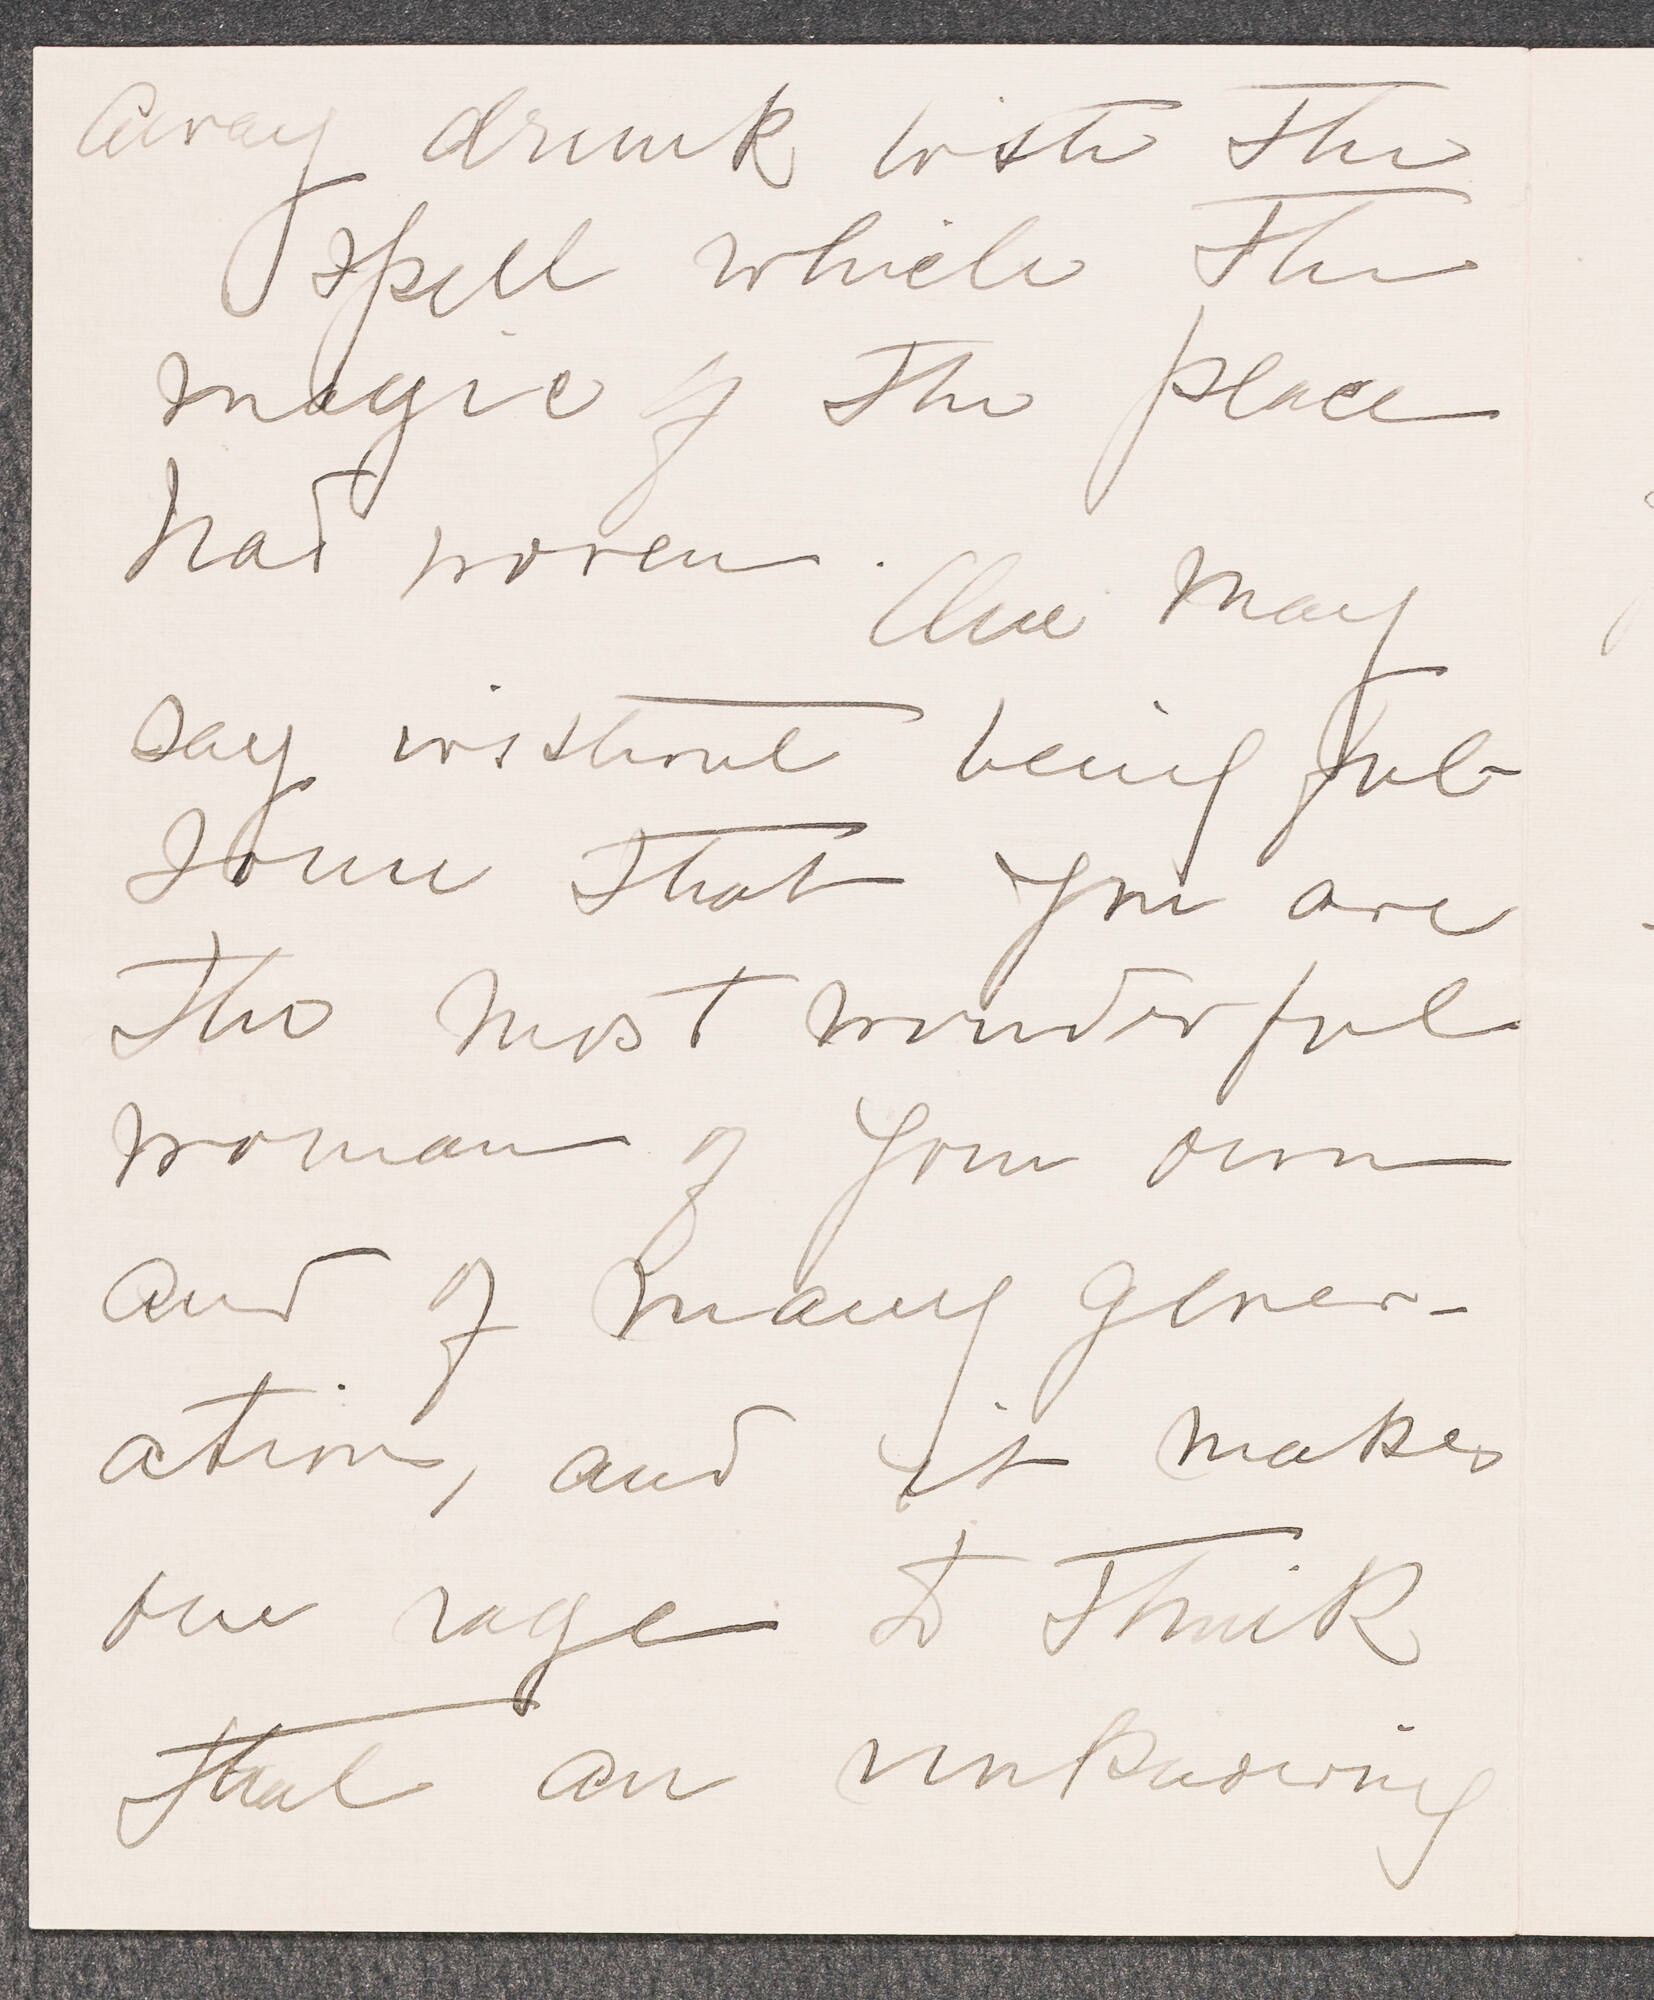 away drunk with the
spell which the
magic of the place
had woven. One may
say without being ful-
some that you are
the most wonderful
woman of your own
and of many gener-
ation, and it makes
one rage to think
that an unknowing